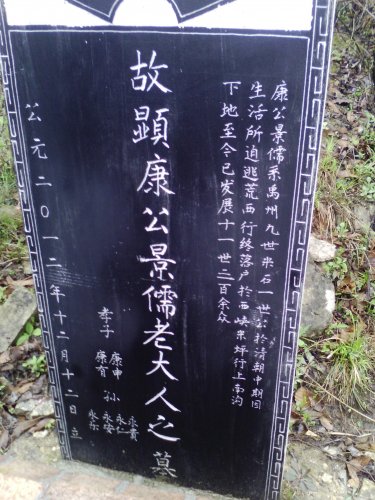 康公景儒系禹州九世米石一世公於清朝中期因
生活所迫逃荒西行终落户於西峡米坪行上南沟
下地至今已发展十一世二百余众
故顯康公景儒老大人之墓
孝子
康申
康有
孙
永貴
永仁
永安
永乐
公元二〇一二年十二月十二日立